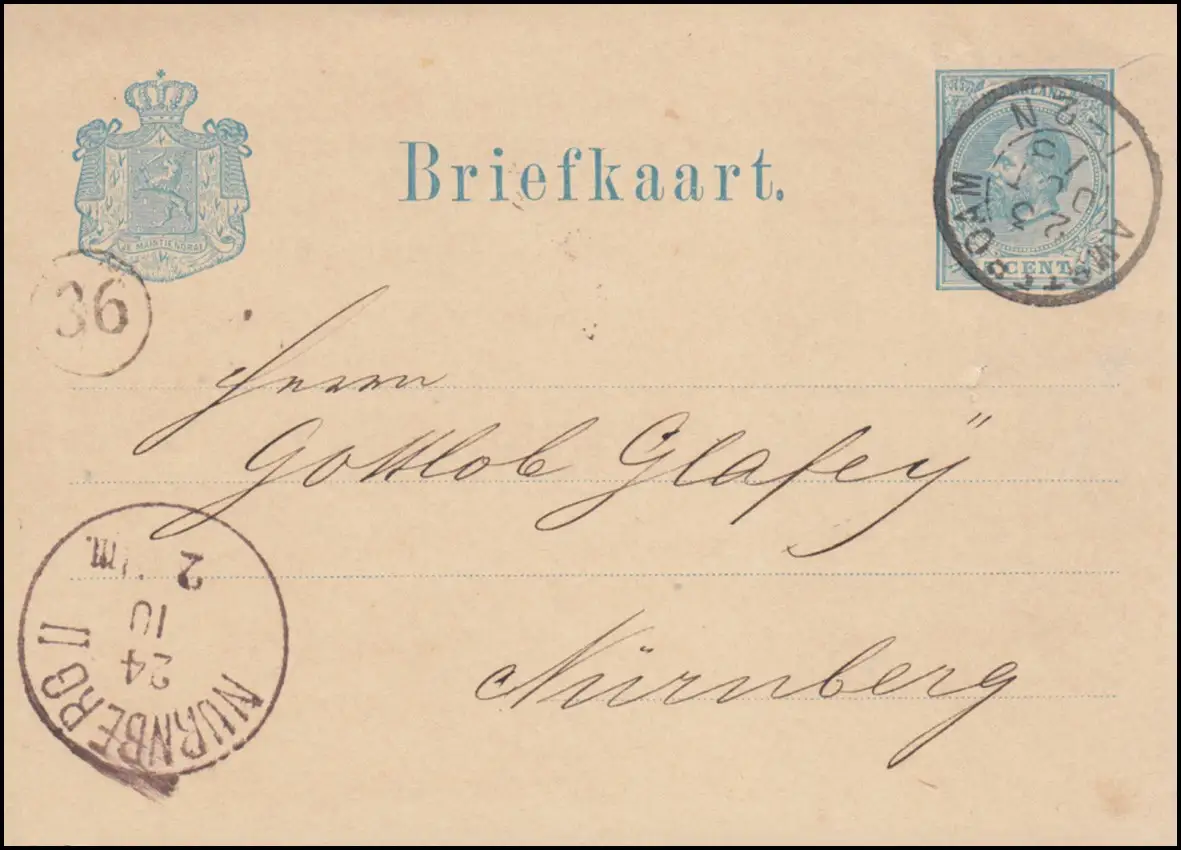 Briefkaart.
JE MAINTIENDRAI
5 CENT
AMSTERDAM
36
Herrn
Gottlob Glafey
Nürnberg
NURNBERG II
24
10
2